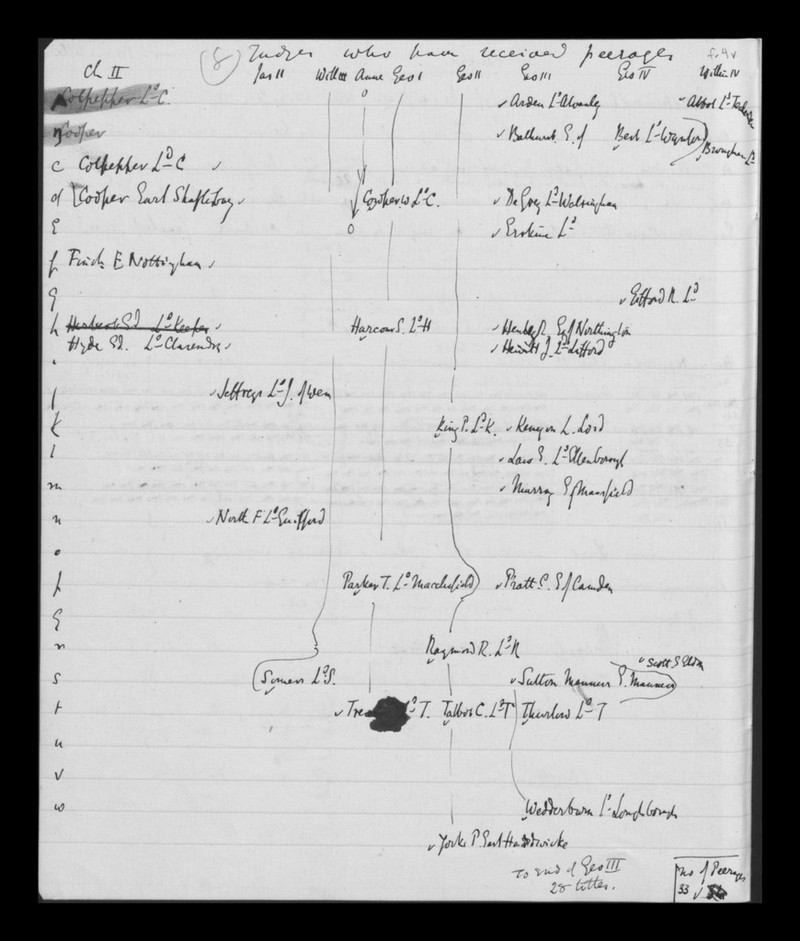 (8) Judges who have received peerages f. 4v
Ch II Jas II Will III Anne Geo I Geo II Geo III Geo IV Will IV
Colpepper Ld C. o Arden Ld Alvanley Abbot Ld Tenterden
Cooper Bathurst E. of Best Ld Wynford Brougham Ld
c Colpepper Ld C
d Cooper Earl Shaftsbury Cowper W Ld C. De Grey Ld Walsingham
E o Erskine Ld
f Finch E Nottingham
g Gifford R. Ld
h Herbert Ed Ld Keeper Harcour S. Ld H Henley R. E of Northington
Hyde Ed. Ld Clarendon Hewitt J. Ld Lifford
j Jeffreys Ld J. of Wem
k King P. Ld K. Kenyon L. Lord
l Law E. Ld Ellenborough
m Murray E of Mansfield
n North F Ld Guilford
o
p Parker T. Ld Macclesfield Pratt C. E of Camden
q
r Raymond R. Ld R
Scott J Eldon
s Somers Ld S. Sutton Manners T. Manners
t Tre Ld T. Talbot C. Ld T Thurlow Ld T
u
v
w Wedderburn Ld Loughborough
Yorke P. Earl Hardwicke
To end of Geo III
28 titles.
no of Peerages
33